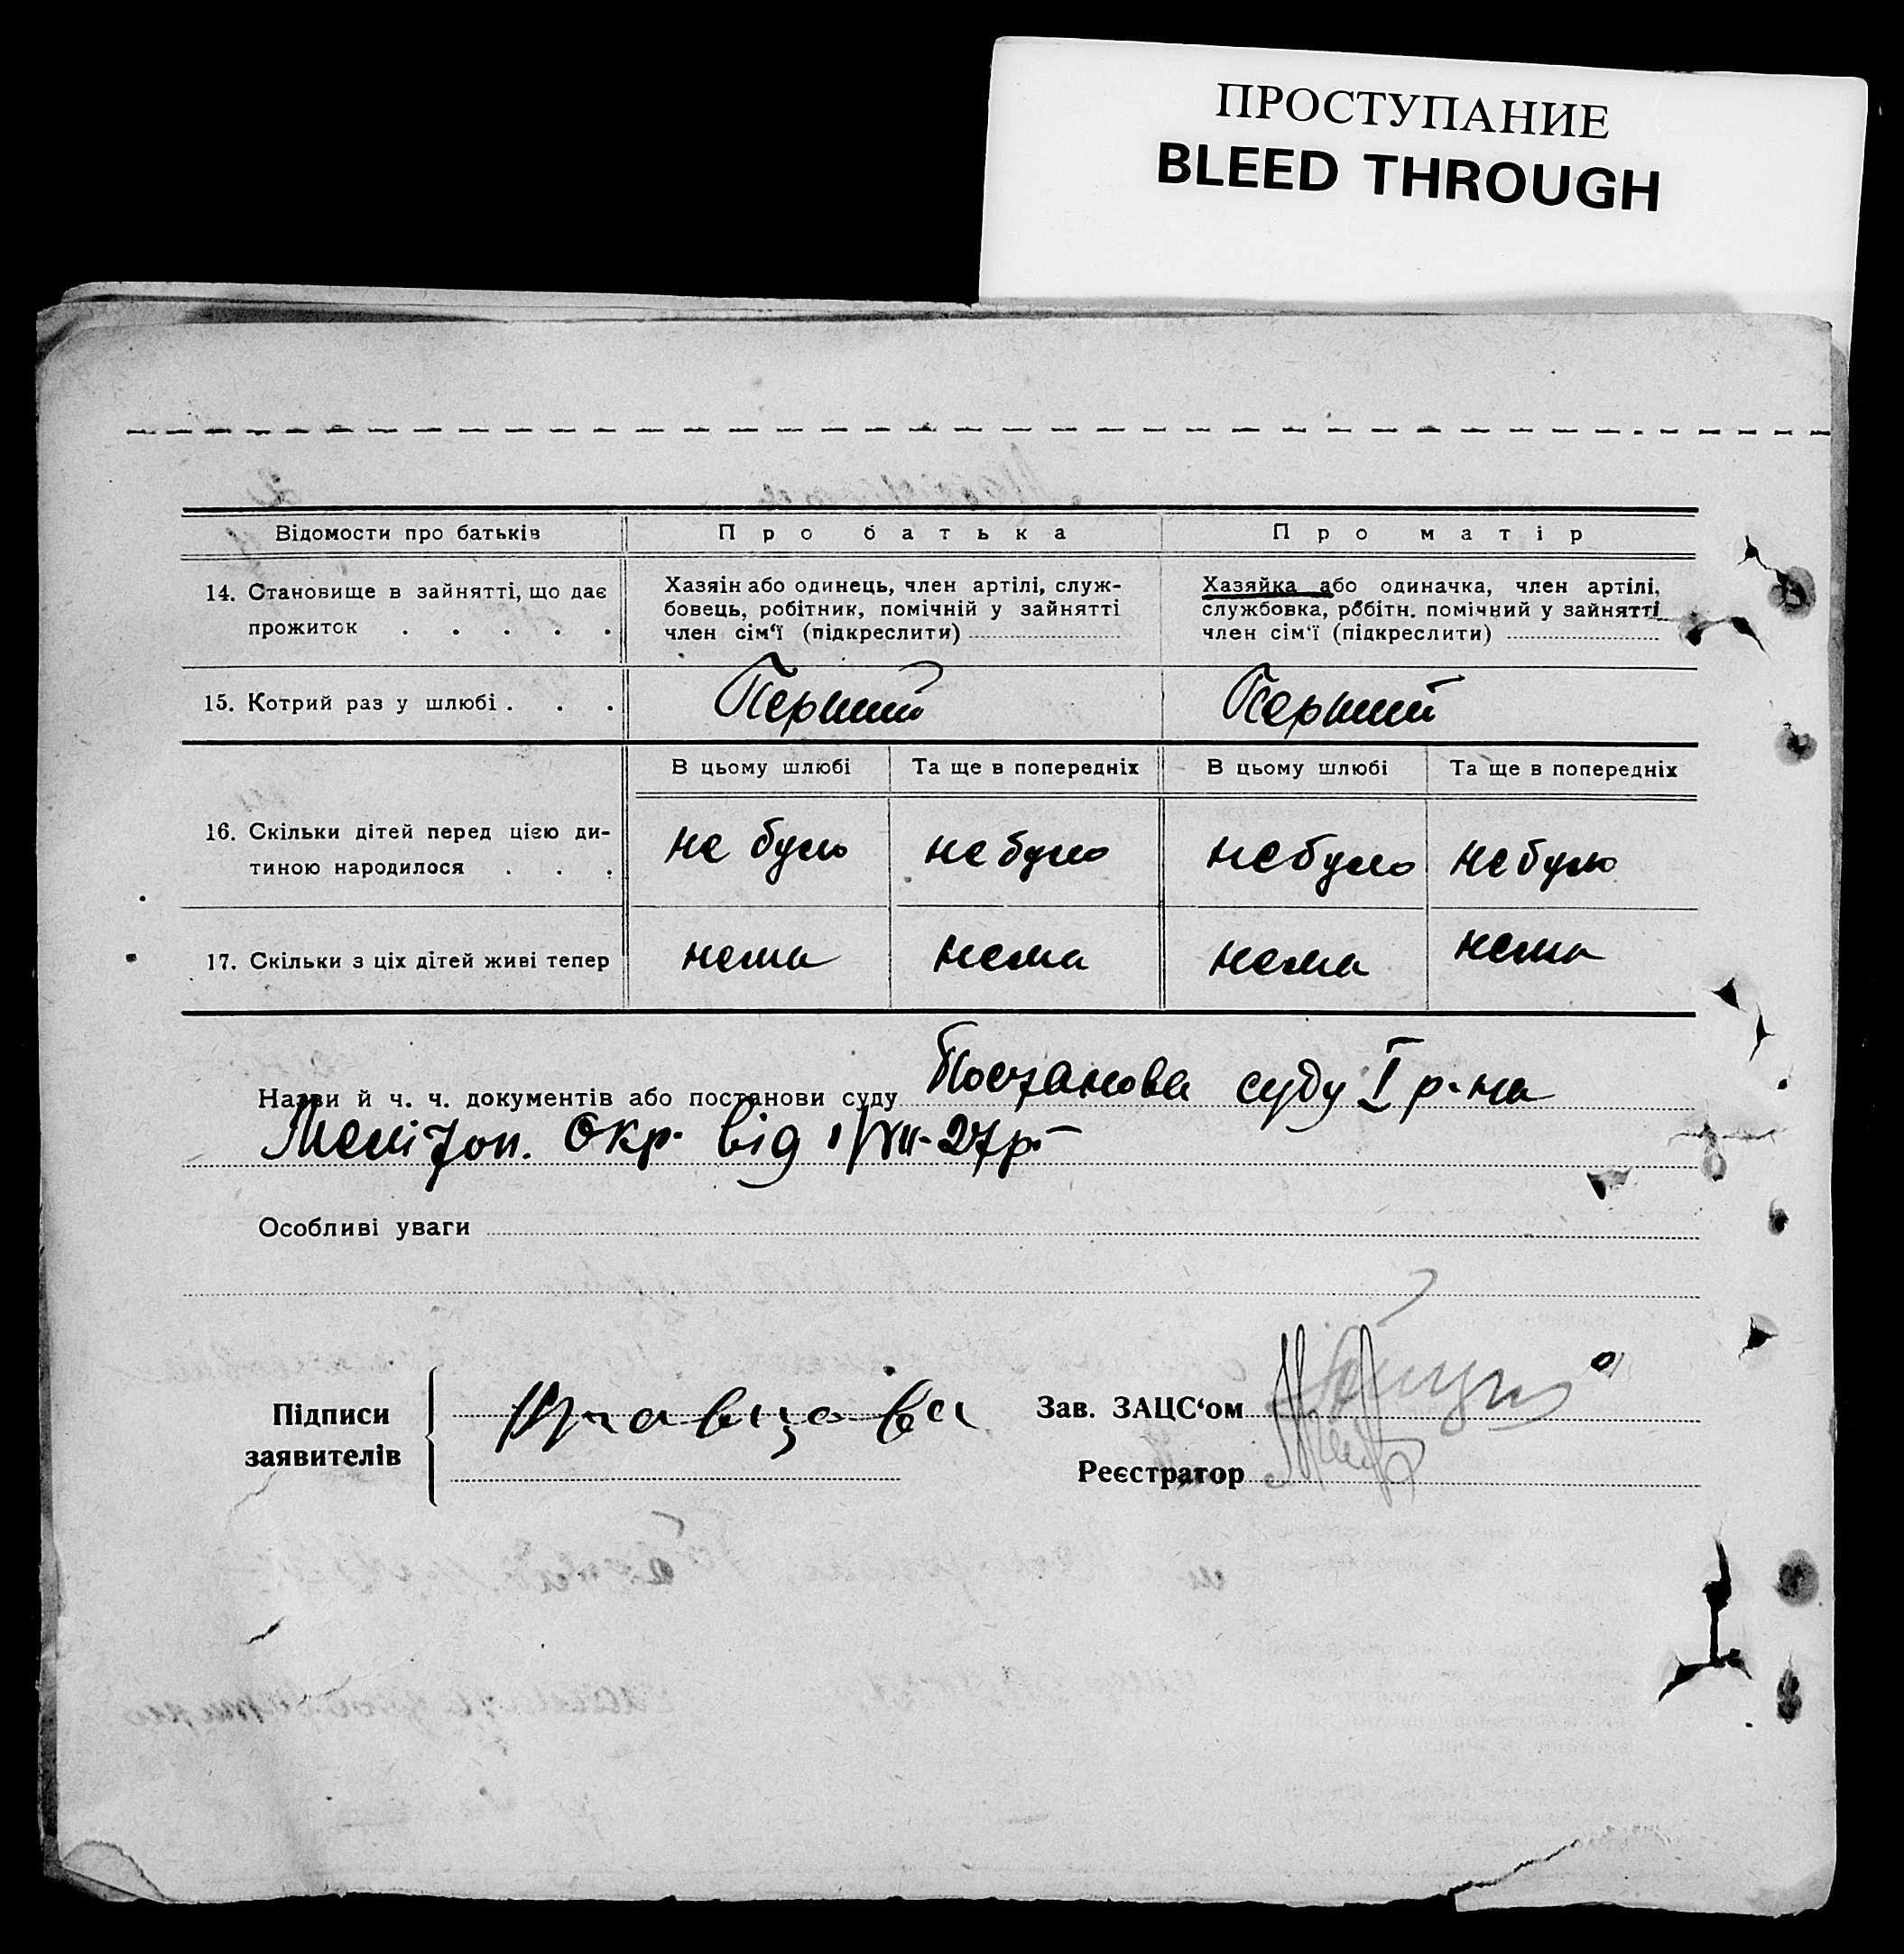 ПРОСТУПАНИЕ
BLEED THROUGH
Відомости про батьків
Про батька
Про матір
14. Становище в зайнятті, що дає
прожиток . . . . .
Хазяін або одинець, член артілі, служ-
бовець, робітник, помічній у зайнятті
член сім'ї (підкреслити)
Хазяйка або одиначка, член артілі,
службовка, робітн. помічний у зайнятті
член сім'ї (підкреслити)
15. Котрий раз у шлюбі . . .
Перший
Перший
В цьому шлюбі
Та ще в попередніх
В цьому шлюбі
Та ще в попередніх
16. Скільки дітей перед цією ди-
тиною народилося . . .
не було
не було
не було
не було
17. Скільки з ціх дітей живі тепер
нема
нема
нема
нема
Назви й ч. ч. документів або постанови суду Постанова суду I р-на
Мелітоп. Окр. від 1/VII-27р.
Особливі уваги
Підписи
заявителів
Кравцова
Зав. ЗАЦС'ом
Реєстратор